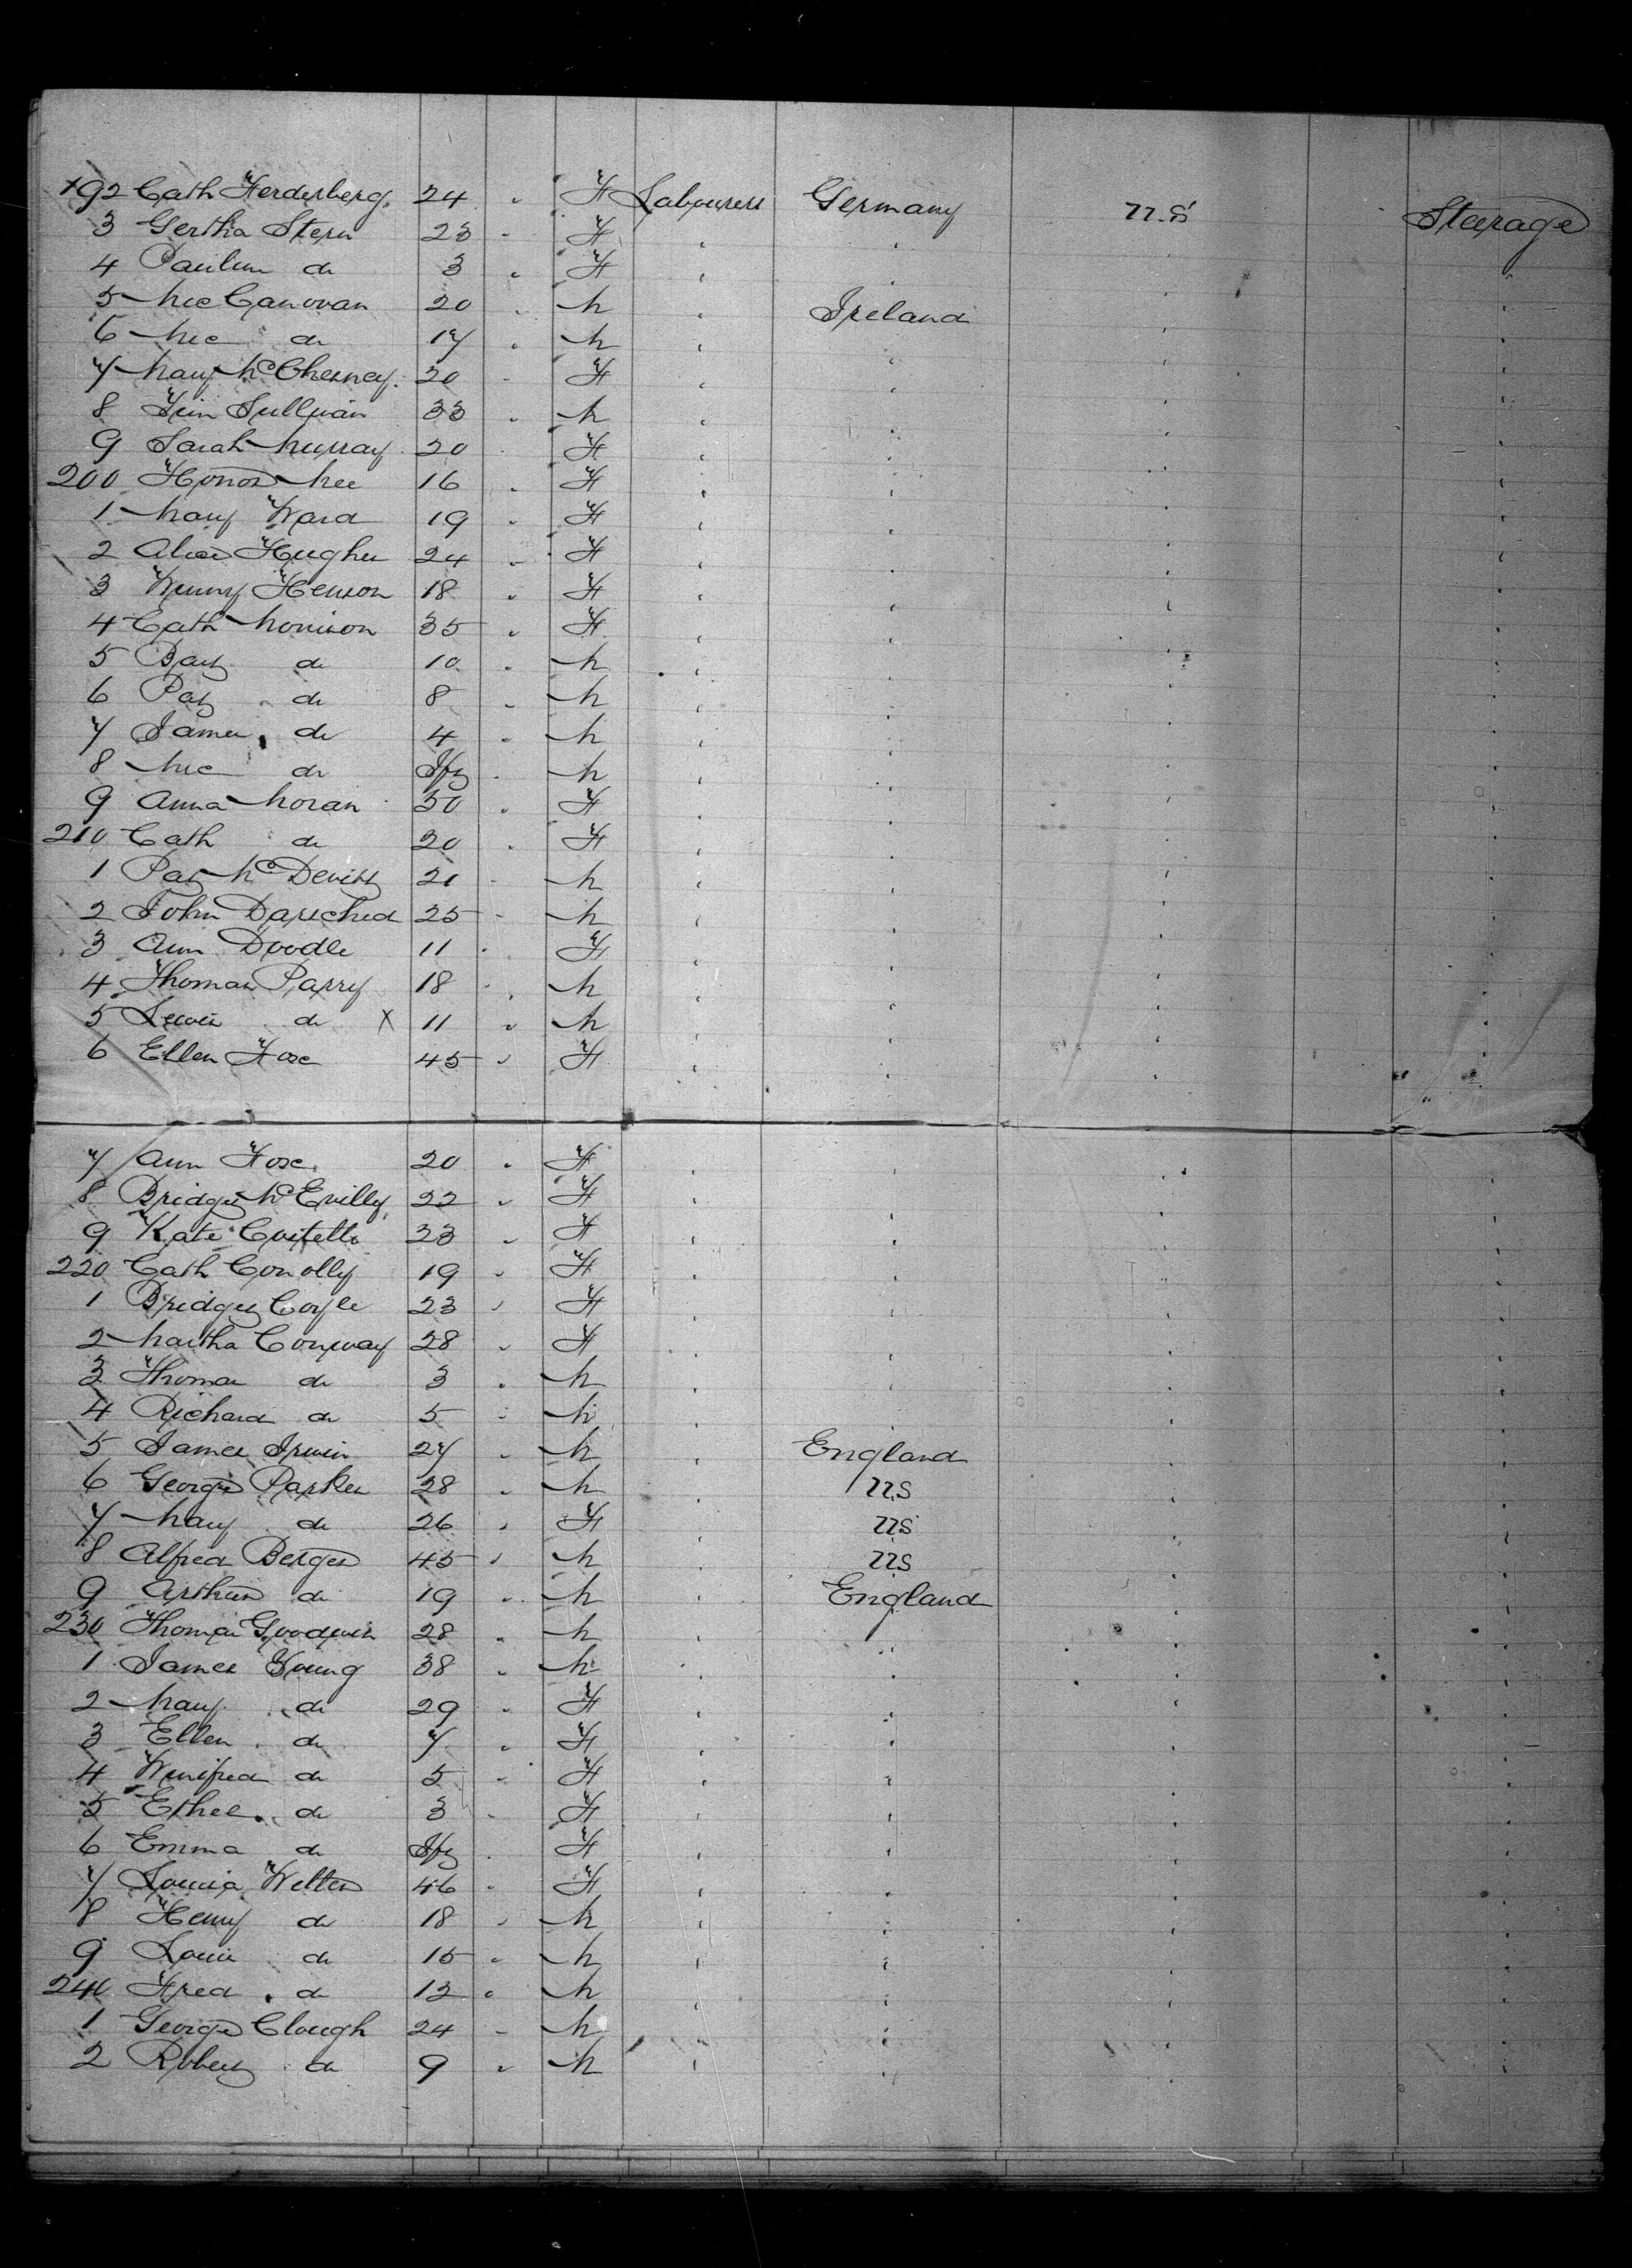 192 Cath Herderberg 24 " F Labourers Germany U.S Steerage
3 Gertha Stern 23 " F " " " "
4 do 3 " F " " " "
5 Mic Canovan 20 " M " Ireland " "
6 Mic do 17 " M " " " "
7 Mary McChesney 20 " F " " " "
8 Jim Sullivan 33 " M " " " "
9 Sarah Murray 20 " F " " " "
200 Honor Mee 16 " F " " " "
1 Mary Ward 19 " F " " " "
2 Alice Hughes 24 " F " " " "
3 Winny Henson 18 " F " " " "
4 Cath Morrison 35 " F " " " "
5 Bart do 10 " M " " " "
6 Pat do 8 " M " " " "
7 James do 4 " M " " " "
8 Mic do Ift " M " " " "
9 Anna Moran 50 " F " " " "
210 Cath do 20 " F " " " "
1 Pat McDevitt 21 " M " " " "
2 John 25 " M " " " "
3 Ann Doodle 11 " F " " " "
4 Thomas Parry 18 " M " " " "
5 Lewis do X 11 " M " " " "
6 Ellen Fox 45 " F " " " "
7 Ann Fox 20 " F " " " "
8 Bridget McEvilly 22 " F " " " "
9 Kate Costello 23 " F " " " "
220 Cath Conolly 19 " F " " " "
1 Bridget Coyle 23 " F " " " "
2 Martha Conway 28 " F " " " "
3 Thomas do 3 " M " " " "
4 Richard do 5 " M " " " "
5 James Irwin 27 " M " England " "
6 George Parker 28 " M " U.S " "
7 Mary do 26 " F " U.S " "
8 Alfred Berger 45 " M " U.S " "
9 Arthur do 19 " M " England " "
230 Thomas Goodwin 28 " M " " " "
1 James Young 38 " M " " " "
2 Mary do 29 " F " " " "
3 Ellen do 7 " F " " " "
4 Winifred do 5 " F " " " "
5 Ethel do 3 " F " " " "
6 Emma do Ift " F " " " "
7 Louisa Welter 46 " F " " " "
8 Henry do 18 " M " " " "
9 Louis do 15 " M " " " "
240 Fred do 12 " M " " " "
1 George Clough 24 " M " " " "
2 Robert do 9 " M " " " "